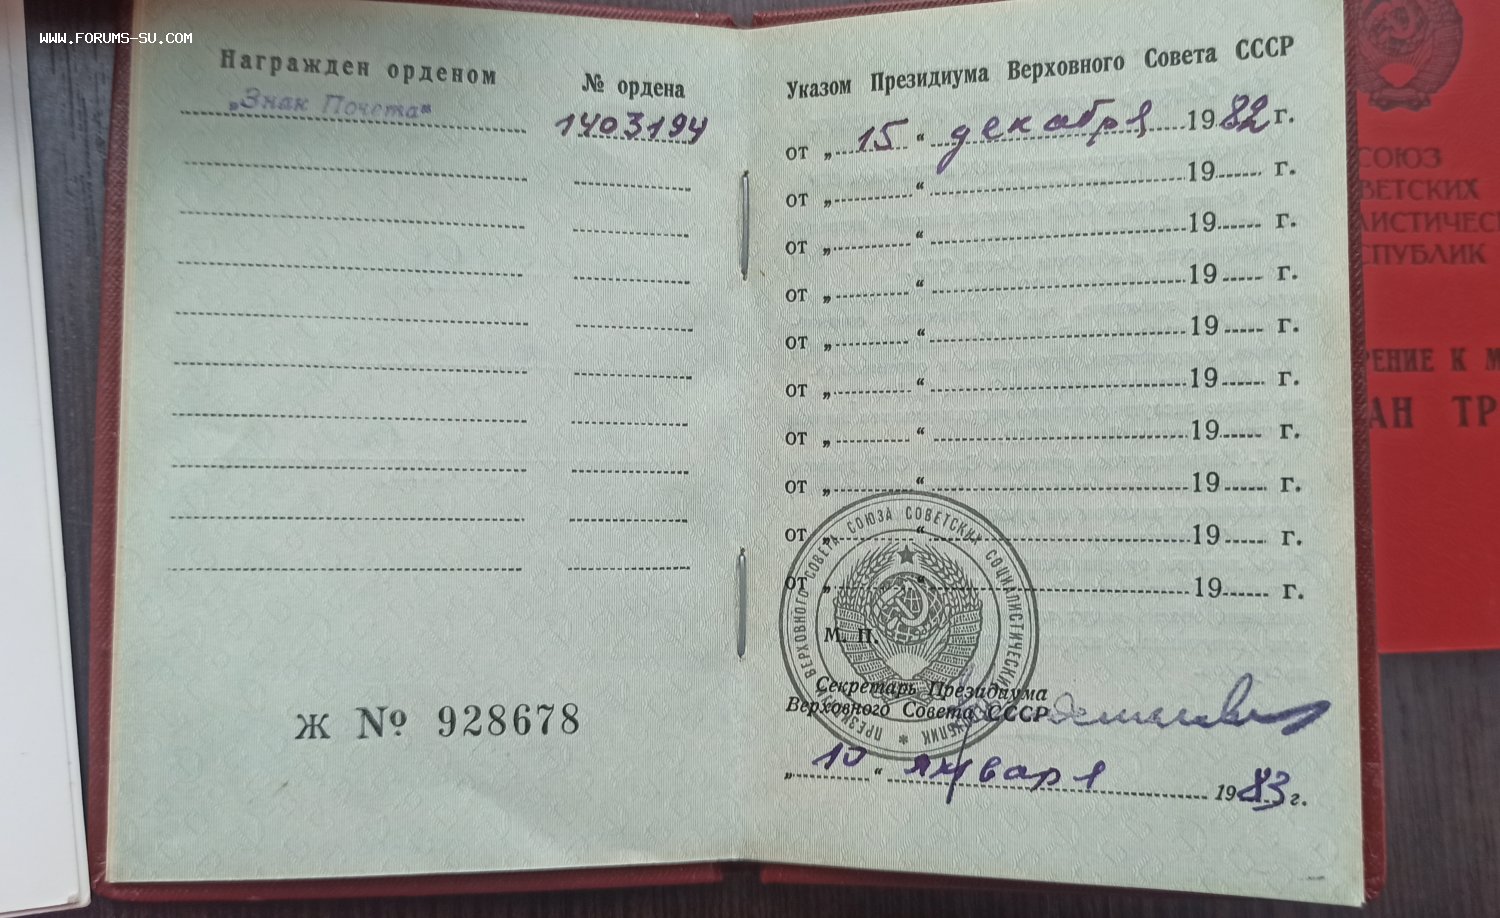 WWW.FORUMS-SU.COM
Награжден орденом
№ ордена
„Знак Почета“
1403194
Указом Президиума Верховного Совета СССР
от „ 15 “ декабря 1982 г.
от „ “ 19 г.
от „ “ 19 г.
от „ “ 19 г.
от „ “ 19 г.
от „ “ 19 г.
от „ “ 19 г.
от „ “ 19 г.
от „ “ 19 г.
от „ “ 19 г.
М. П.
ПРЕЗИДИУМ ВЕРХОВНОГО СОВЕТА СОЮЗА СОВЕТСКИХ СОЦИАЛИСТИЧЕСКИХ РЕСПУБЛИК
Секретарь Президиума
Верховного Совета СССР
„ 10 “ января 1983 г.
Ж № 928678
СОЮЗ
ВЕТСКИХ
ЛИСТИЧЕС
СПУБЛИК
РЕНИЕ К М
АН ТР